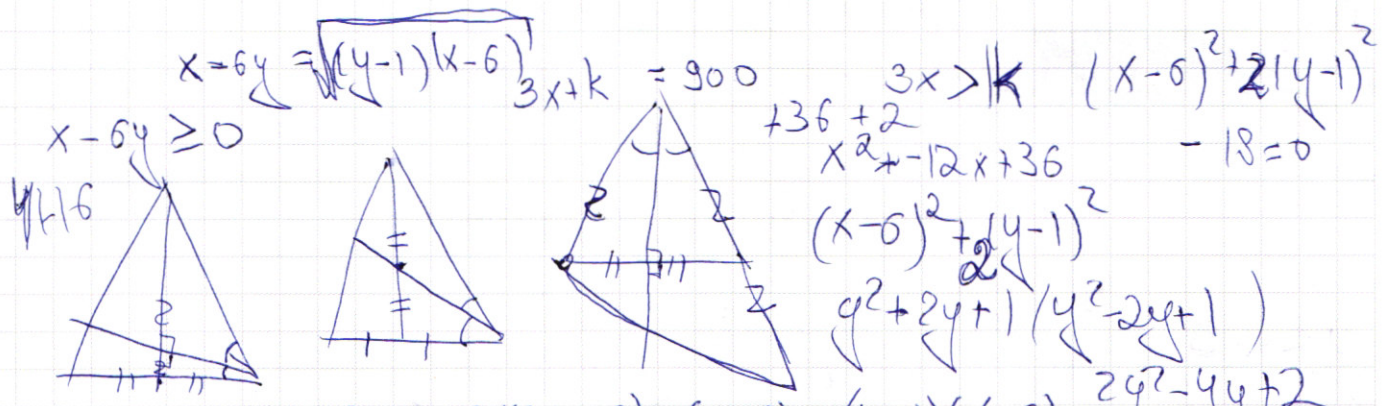 x - 6y = √((y-1)(x-6))
3x+k = 900
3x > k
(x-6)² + 2(y-1)²
- 18 = 0
x - 6y ≥ 0
+36 +2
x² + -12x + 36
(x-6)² + 2(y-1)²
y² + 2y + 1 (y² - 2y + 1)
2y² - 4y + 2